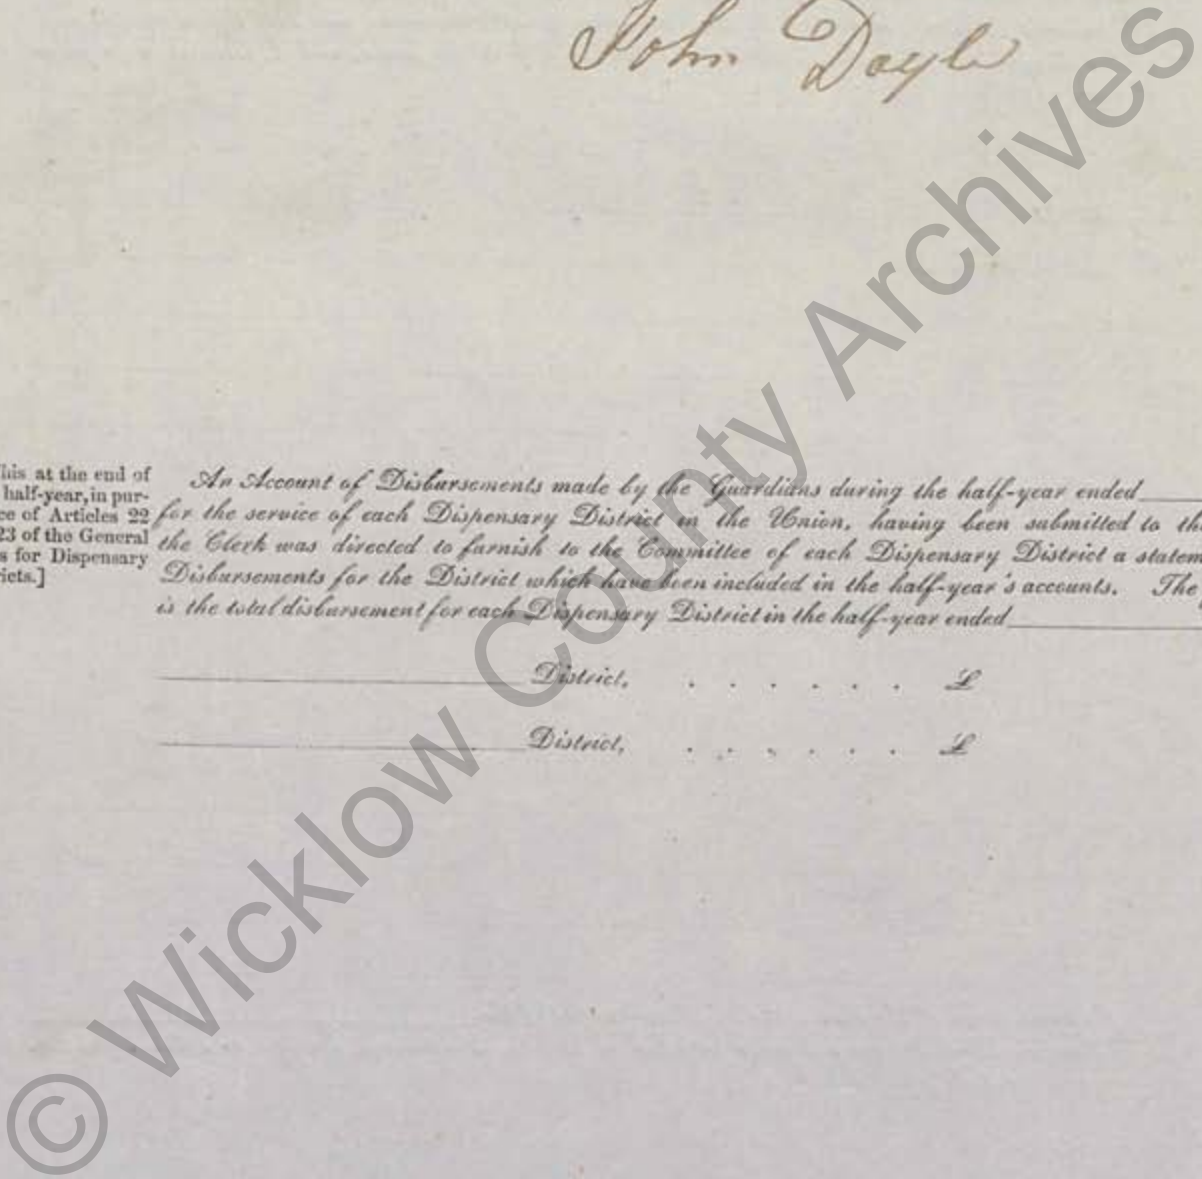 John Doyle
his at the end of
half-year, in pur-
ce of Articles 22
23 of the General
s for Dispensary
ricts.]
An Account of Disbursements made by the Guardians during the half-year ended
for the service of each Dispensary District in the Union, having been submitted to th
the Clerk was directed to furnish to the Committee of each Dispensary District a statem
Disbursements for the District which have been included in the half-year's accounts. The
is the total disbursement for each Dispensary District in the half-year ended
District, . . . . . . £
District, . . . . . . £
© Wicklow County Archives